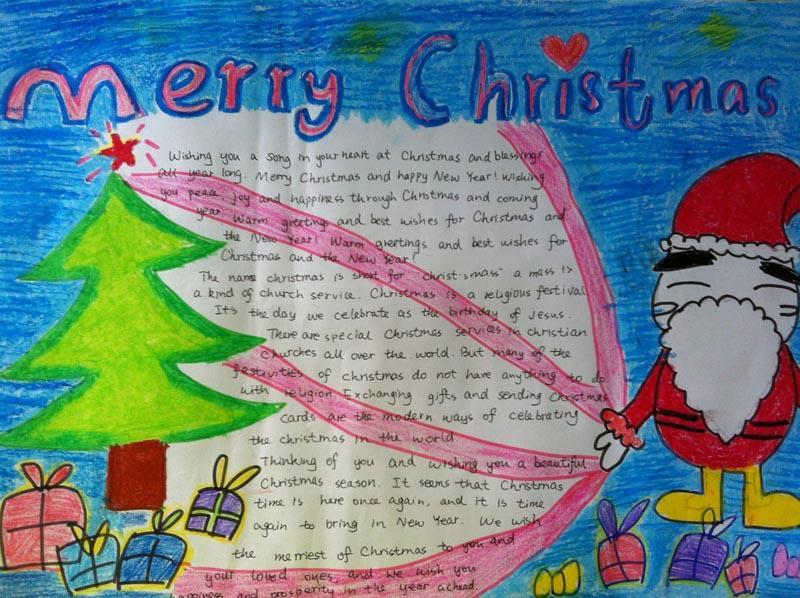 Merry Christmas
Wishing you a song in your heart at Christmas and blessings
all year long. Merry Christmas and happy New Year! Wishing
you peace, joy and happiness through Christmas and coming
year. Warm greetings and best wishes for Christmas and
the New Year! Warm greetings and best wishes for
Christmas and the New Year!
The name christmas is short for "christ's mass" a mass is
a kind of church service. Christmas is a religious festival
It's the day we celebrate as the birthday of Jesus.
There are special Christmas services in christian
churches all over the world. But many of the
festivities of christmas do not have anything to do
with religion. Exchanging gifts and sending Christmas
cards are the modern ways of celebrating
the christmas in the world
Thinking of you and wishing you a beautiful
Christmas season. It seems that Christmas
time is here once again, and it is time
again to bring in New Year. We wish
the merriest of Christmas to you and
your loved ones, and we wish you
happiness and prosperity in the year ahead.